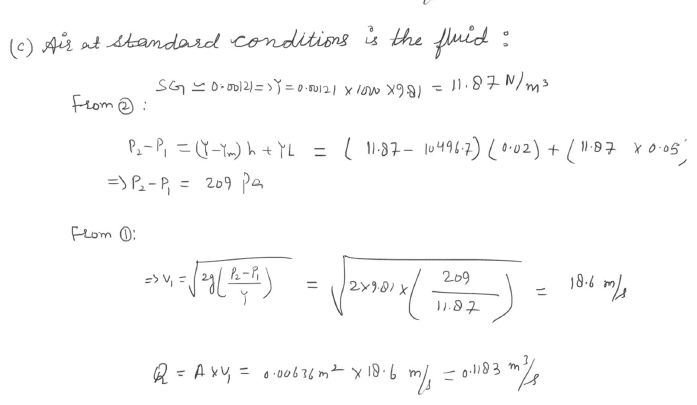 (c) Air at standard conditions is the fluid :
SG ≃ 0.00121 => γ = 0.00121 × 1000 × 9.81 = 11.87 N/m³
From ② :
P₂-P₁ = (γ-γₘ) h + γL = ( 11.87 - 10496.7) (0.02) + ( 11.87 × 0.05)
=> P₂-P₁ = 209 Pa
From ①:
=> V₁ = √(2g( (P₂-P₁)/γ )) = √(2×9.81×( 209/11.87 )) = 18.6 m/s
Q = A×V₁ = 0.00636 m² × 18.6 m/s = 0.1183 m³/s